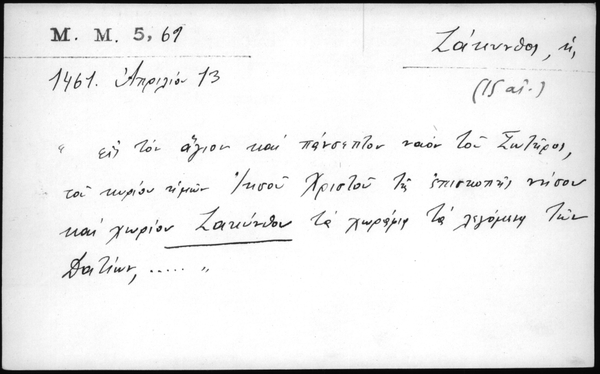 M. M. 5, 61
Ζάκυνθος, ἡ,
1461. Ἀπριλίου 13
(15 αἰ.)
" εἰς τὸν ἅγιον καὶ πάνσεπτον ναὸν τοῦ Σωτῆρος,
τοῦ κυρίου ἡμῶν Ἰησοῦ Χριστοῦ τῆς ἐπισκοπῆς νήσου
καὶ χωρίου Ζακύνθου τὰ χωράφια τὰ λεγόμενα τῶν
Δατίων, ..... "